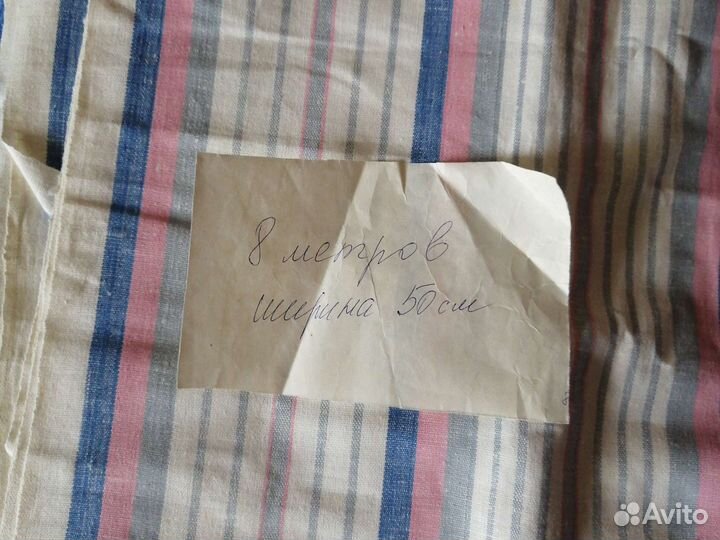 8 метров
ширина 50 см
Avito